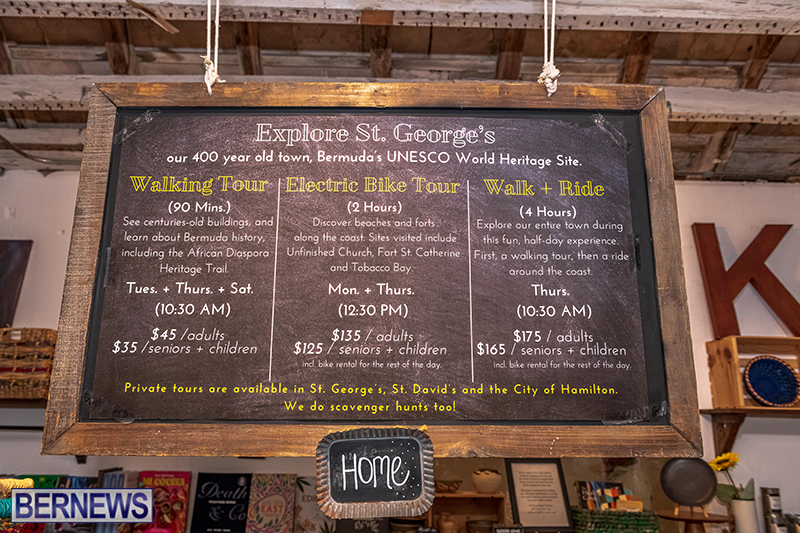 Explore St. George's
our 400 year old town, Bermuda's UNESCO World Heritage Site.
Walking Tour
(90 Mins.)
See centuries-old buildings, and
learn about Bermuda history,
including the African Diaspora
Heritage Trail.
Tues. + Thurs. + Sat.
(10:30 AM)
$45 / adults
$35 / seniors + children
Electric Bike Tour
(2 Hours)
Discover beaches and forts
along the coast. Sites visited include
Unfinished Church, Fort St. Catherine
and Tobacco Bay.
Mon. + Thurs.
(12:30 PM)
$135 / adults
$125 / seniors + children
incl. bike rental for the rest of the day.
Walk + Ride
(4 Hours)
Explore our entire town during
this fun, half-day experience.
First, a walking tour, then a ride
around the coast.
Thurs.
(10:30 AM)
$175 / adults
$165 / seniors + children
Incl. bike rental for the rest of the day.
Private tours are available in St. George's, St. David's and the City of Hamilton.
We do scavenger hunts too!
HOME
K
Death
& Co
EAST
BERNEWS